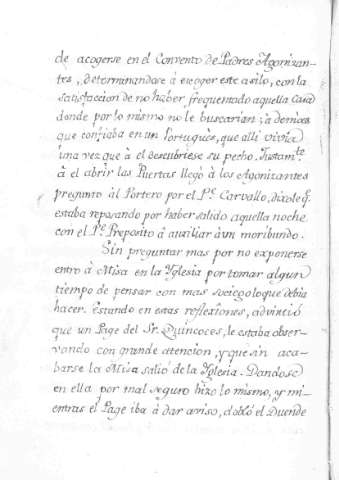 de acogerse en el Convento de Padres Agonizan-
tes, determinandose á escoger este asilo, con la
satisfaccion de no haber frequentado aquella Casa
donde por lo mismo no le buscarian; á demas
que confiaba en un Portugués, que alli vivia
una vez que á el descubriese su pecho. Justam.te
á el abrir las Puertas llegó á los Agonizantes
pregunto al Portero por el P.e Carvallo, dixole q.e
estaba reposando por haber salido aquella noche
con el P.e Preposito á auxiliar à un moribundo.
Sin preguntar mas por no exponerse
entró á Misa en la Yglesia por tomar algun
tiempo de pensar con mas sociego lo que debia
hacer. Estando en estas reflexiones, advirtió
que un Page del Sr. Quincoces, le estaba obser-
vando con grande atencion, y que sin aca-
barse la Misa salió de la Yglesia. Dandose
en ella por mal seguro hizo lo mismo, y mi-
entras el Page iba á dar aviso, dobló el Duende